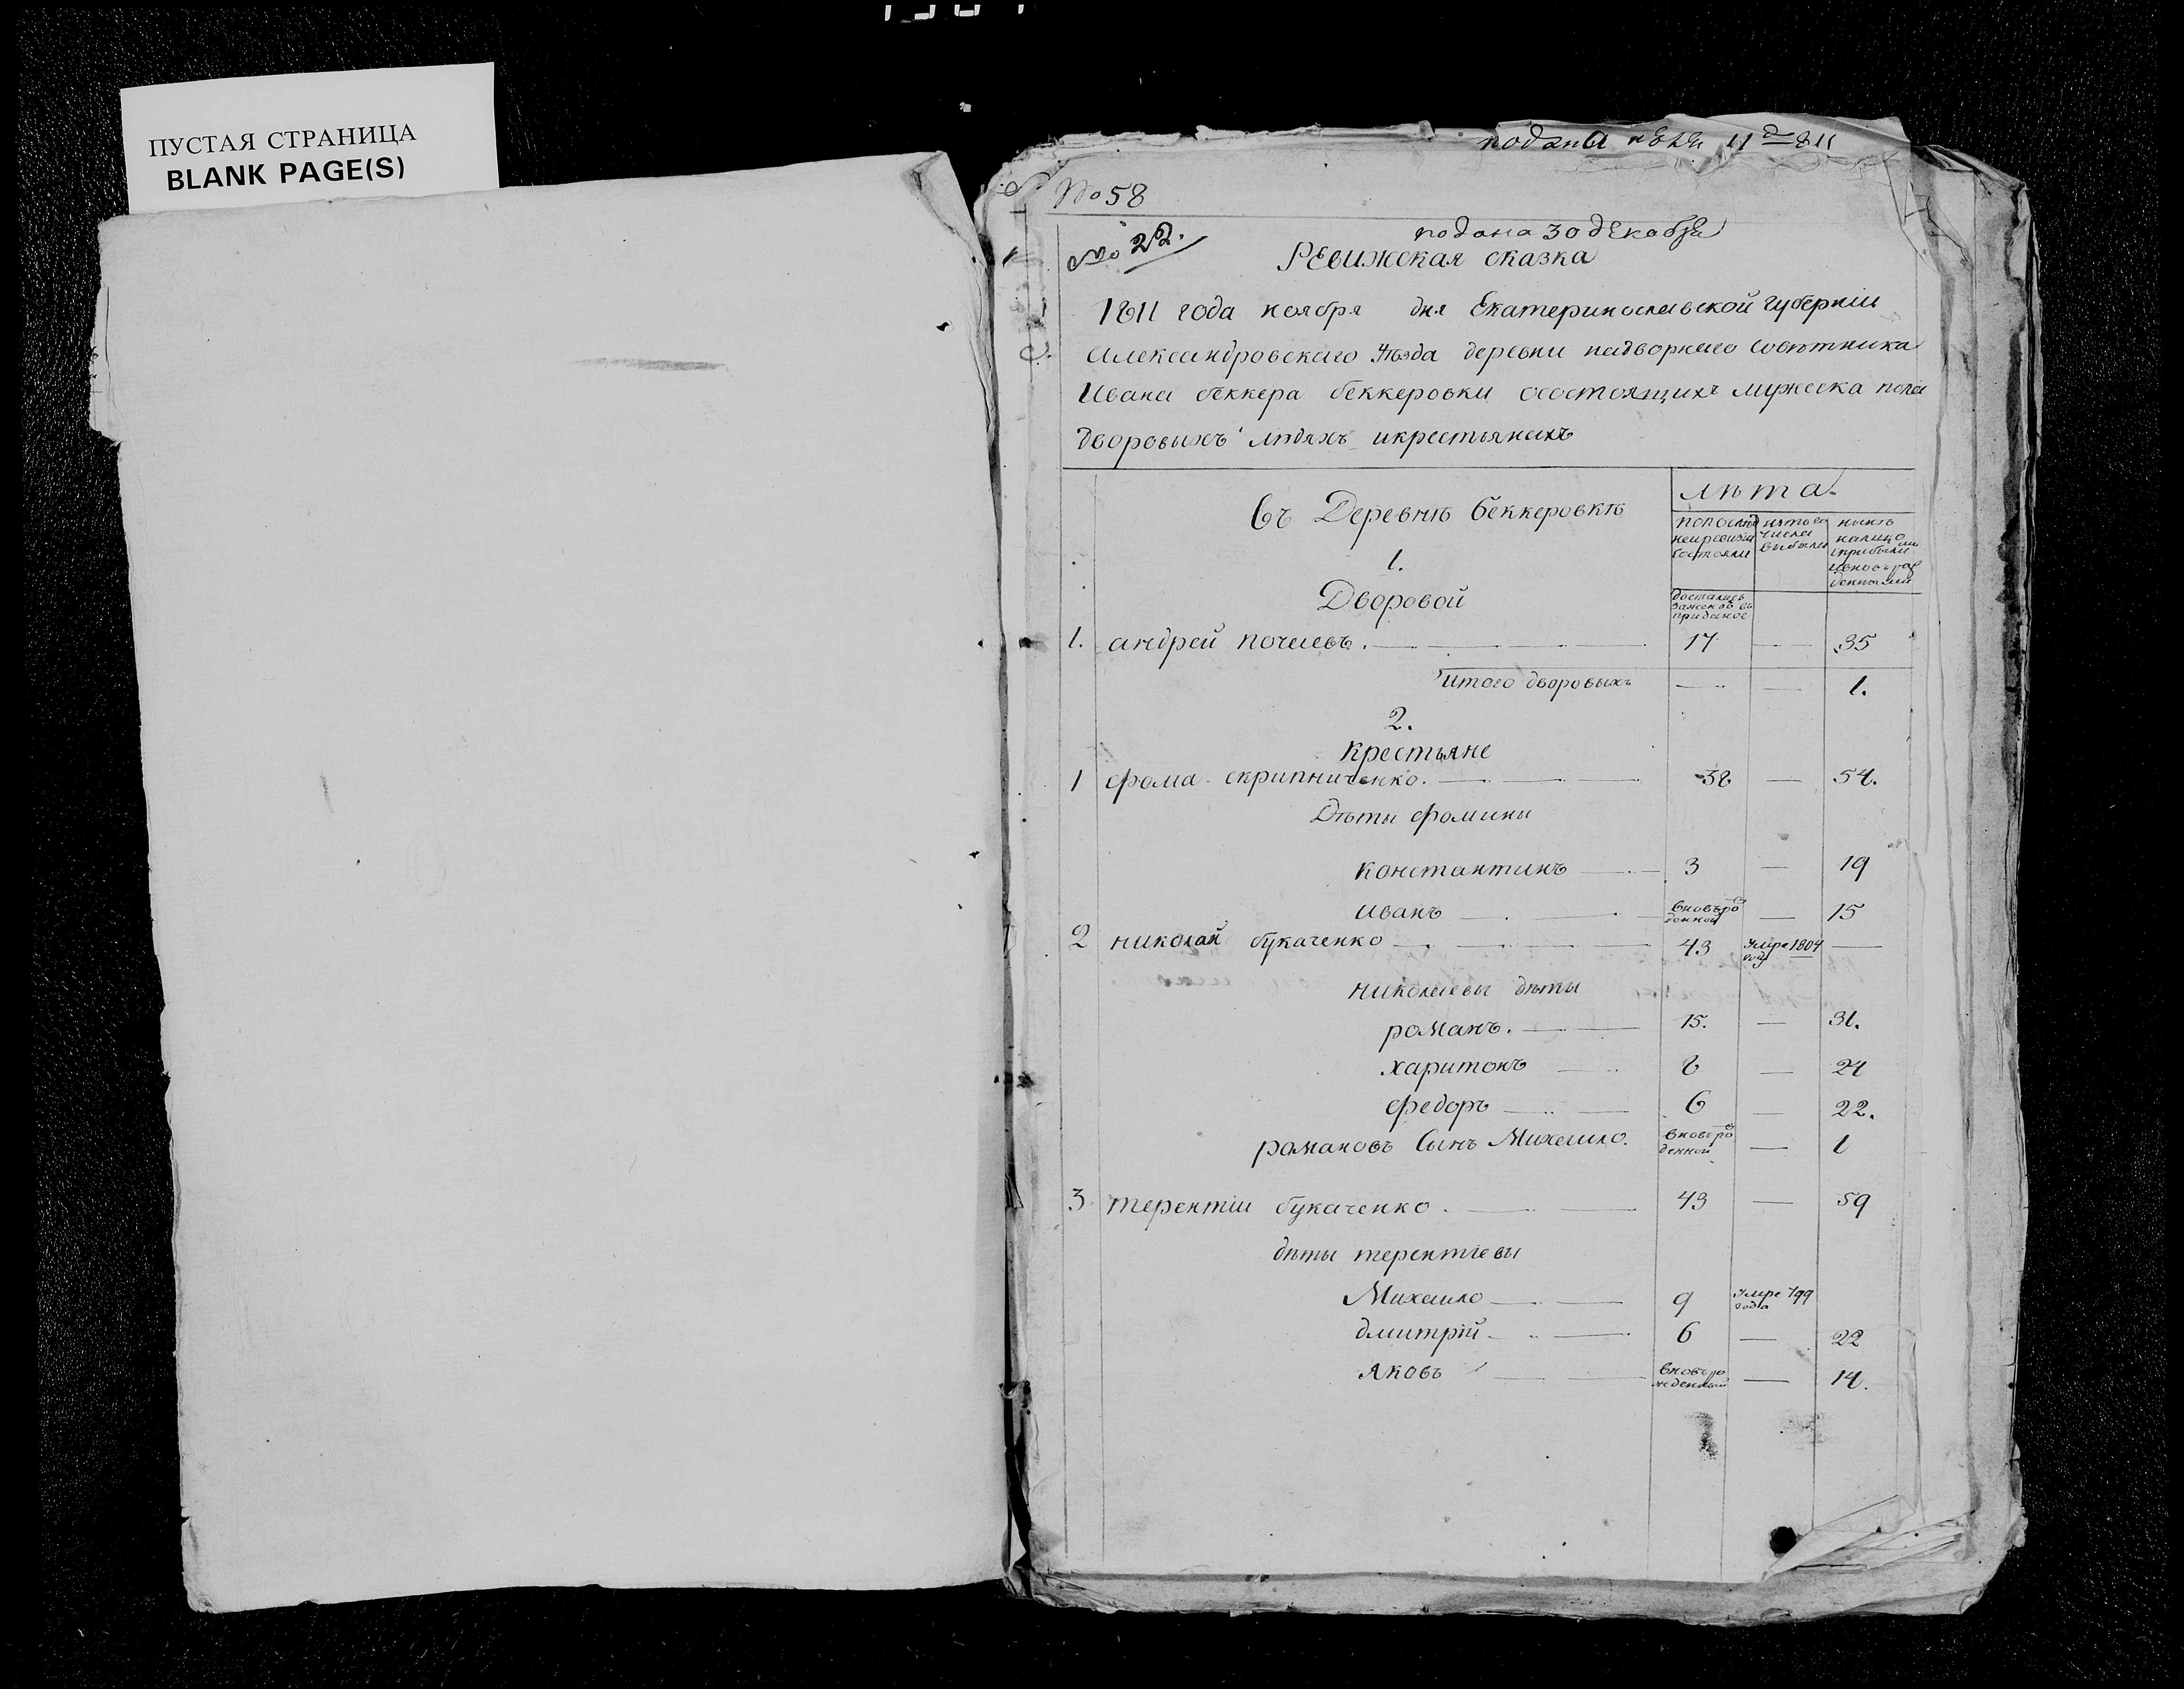 ПУСТАЯ СТРАНИЦА
BLANK PAGE(S)
подана 11 811
No 58
No 22.
подана 30 декабря
Ревижская сказка
1811 года ноября дня Екатеринославской губернии
Александровскаго уѣзда деревни надворнаго совѣтника
Ивана беккера беккеровки осостоящихъ мужеска пола
дворовыхъ людяхъ икрестьянахъ
Въ Деревнѣ беккеровкѣ
лѣта.
попослѣд
ней ревизіи
состояли
изтого
числа
выбыли
нынѣ
налицо
1.
Дворовой
достались
заженой въ
приданое
1. андрей почаевъ. 17 — 35
Итого дворовыхъ — — 1.
2.
крестьяне
1 фома скрипниченко. 38 — 54.
Дѣти фомины
константинъ 3 — 19
иванъ вновьро
денной — 15
2 николай букаченко 43 умре 1804
году —
николаевы дѣти
романъ. 15. — 31.
харитонъ 8 — 24
федоръ 6 — 22.
романовъ Сынъ Михаило. вновьро
денной — 1
3 терентіи букаченко. 43 — 59
дѣти терентіевы
Михаило 9 умре 799
года
дмитрій 6 — 22
яковъ вновьро
жденный — 14.